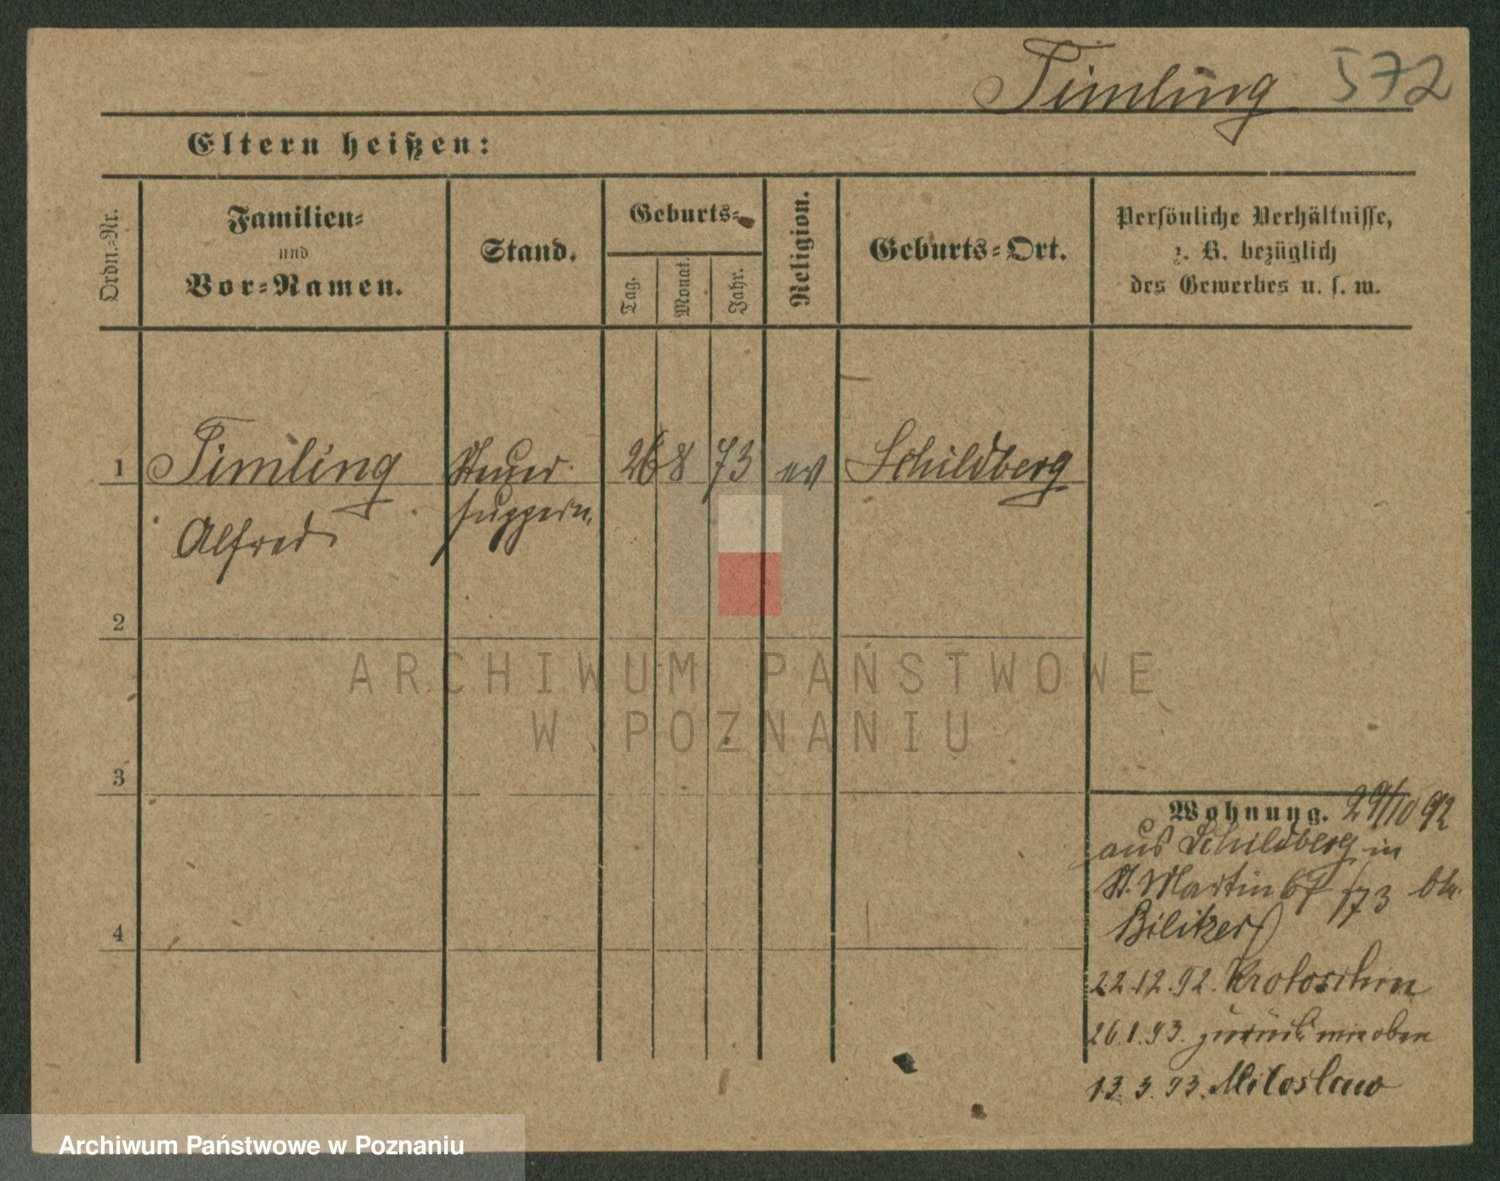 Timling 572
Eltern heißen:
Ordn.-Nr.
Familien-
und
Vor-Namen.
Stand.
Geburts-
Tag.
Monat.
Jahr.
Religion.
Geburts-Ort.
Persönliche Verhältnisse,
z. B. bezüglich
des Gewerbes u. s. w.
1 Timling Steuer 26 8 73 ev Schildberg
Alfred supern.
2
ARCHIWUM PAŃSTWOWE
W POZNANIU
3
Wohnung. 29/10 92
aus Schildberg in
St. Martin 67 /73 bh.
Bilitzer
4
22.12.92. Krotoschin
26.1.93. zurück wie oben
13.3.93. Miloslaw
Archiwum Państwowe w Poznaniu